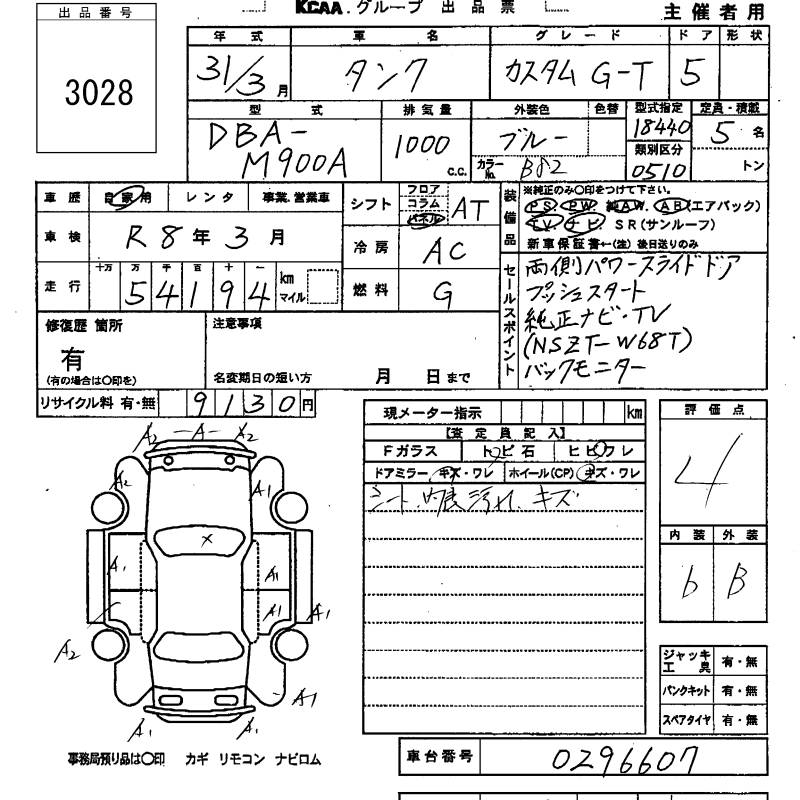 KCAA グループ 出品票
主催者用
出品番号
3028
年式 車名 グレード ドア 形状
31/3月 タンク カスタム G-T 5
型式 排気量 外装色 色替 型式指定 定員・積載
DBA-M900A 1000 c.c. ブルー 18440 5名
カラーNo. B82 類別区分 0510 トン
車歴 自家用 レンタ 事業.営業車
シフト フロア コラム パネル AT
装備品 ※純正のみ〇印をつけて下さい。
PS PW 純AW. AB(エアバック)
TV. ナビ. SR(サンルーフ)
新車保証書←(注)後日送りのみ
車検 R8年3月
冷房 AC
走行 十万 万 千 百 十 一 km マイル
54194
燃料 G
セールスポイント
両側パワースライドドア
プッシュスタート
純正ナビ・TV
(NSZT-W68T)
バックモニター
修復歴 箇所
有
(有の場合は〇印を)
注意事項
名変期日の短い方 月 日まで
リサイクル料 有・無 9130円
現メーター指示 km
【査定員記入】
Fガラス トビ石 ヒビワレ
ドアミラー キズ・ワレ ホイール(CP) キズ・ワレ
シート、内張汚れ、キズ
評価点
4
内装 外装
b B
A2 A A2
A2 A1
×
A1 A1
A1 A1
A2
A1
A1 A1
ジャッキ工具 有・無
パンクキット 有・無
スペアタイヤ 有・無
事務局預り品は〇印 カギ リモコン ナビロム
車台番号 0296607